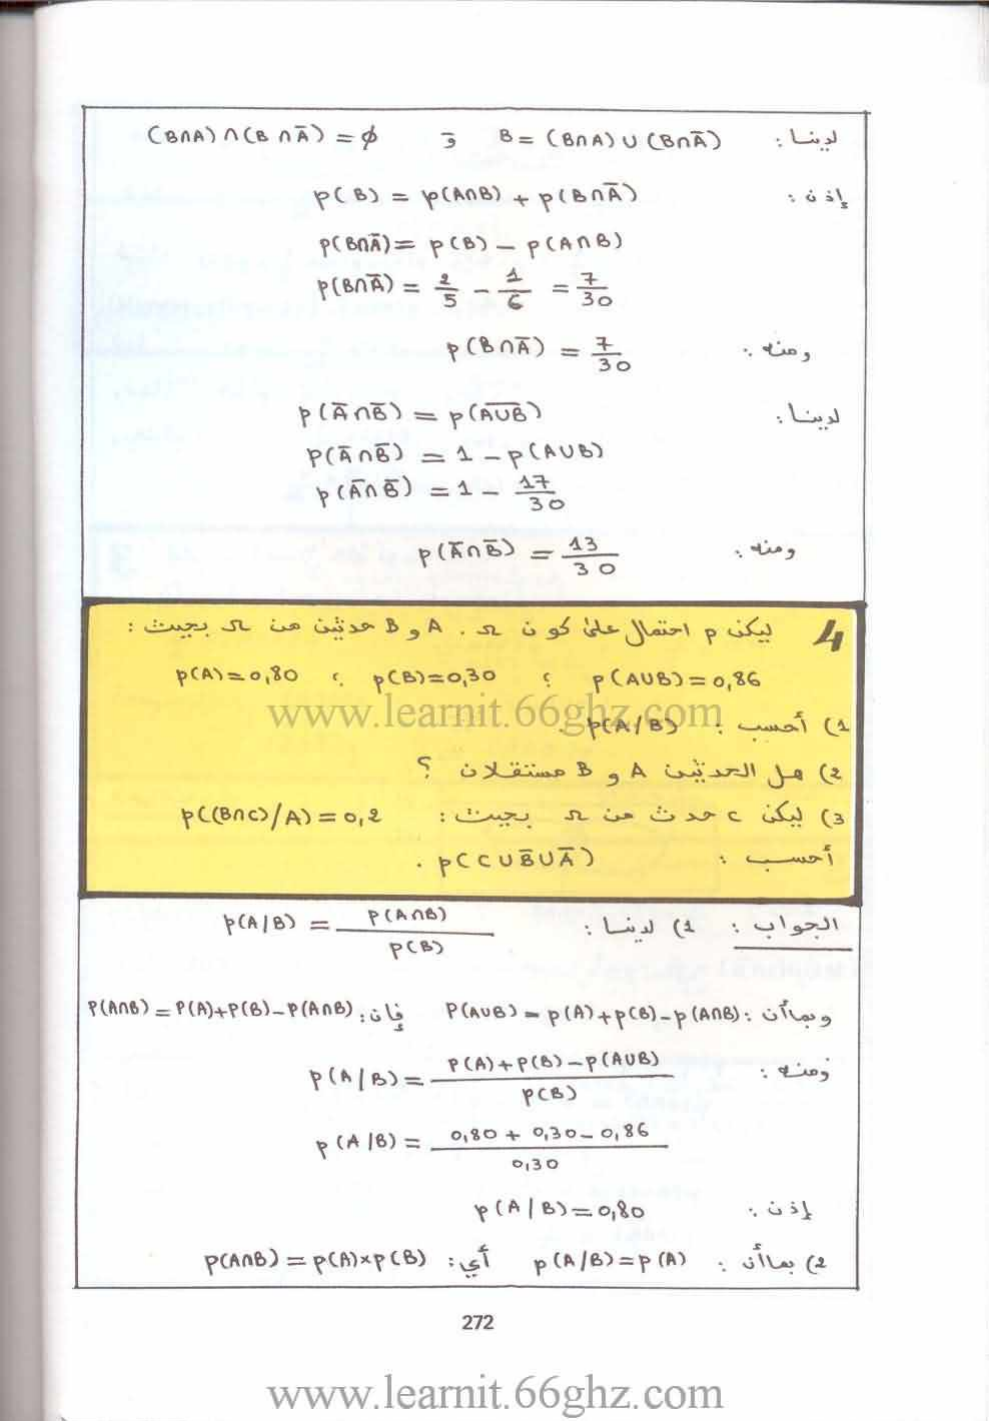 لدينا : B = (B∩A) ∪ (B∩Ā) و (B∩A) ∩ (B∩Ā) = ϕ
إذن : p(B) = p(A∩B) + p(B∩Ā)
p(B∩Ā) = p(B) − p(A∩B)
p(B∩Ā) = 2/5 − 1/6 = 7/30
ومنه : p(B∩Ā) = 7/30
لدينا : p(Ā∩B̄) = p(A̅∪̅B̅)
p(Ā∩B̄) = 1 − p(A∪B)
p(Ā∩B̄) = 1 − 17/30
ومنه : p(Ā∩B̄) = 13/30
4 ليكن p احتمال على كون Ω . A و B حدثين من Ω بحيث :
p(A∪B) = 0,86 ; p(B) = 0,30 ; p(A) = 0,80
www.learnit.66ghz.com
1) أحسب : p(A/B) .
2) هل الحدثين A و B مستقلان ؟
3) ليكن C حدث من Ω بحيث : p((B∩C)/A) = 0,2
أحسب : p(C∪B̄∪Ā) .
الجواب : 1) لدينا : p(A/B) = p(A∩B)/p(B)
وبماأن : p(A∪B) = p(A)+p(B)−p(A∩B) فإن : P(A∩B) = P(A)+P(B)−P(A∩B)
ومنه : p(A/B) = P(A)+P(B)−P(A∪B)/P(B)
p(A/B) = 0,80 + 0,30 − 0,86/0,30
إذن : p(A/B) = 0,80
2) بماأن : p(A/B) = p(A) أي : p(A∩B) = p(A)×p(B)
272
www.learnit.66ghz.com